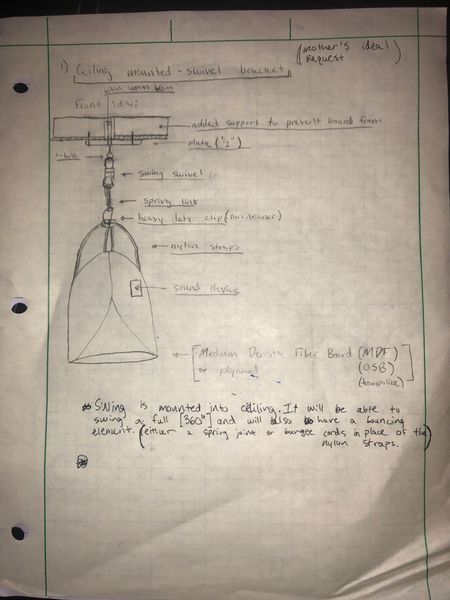 (Mother's ideal
Request)
1) Ceiling mounted - swivel bracket
Front view:
added support to prevent board from
plate (1/2")
swing swivel
spring link
heavy duty clip (carribeaner)
nylon straps
sound device
[Medium Density Fiber Board (MDF)
or plywood (OSB)
* Swing is mounted into ceiling. It will be able to
swing a full [360°] and will also have a bouncing
element. (either a spring joint or bungee cords in place of the
nylon straps.)